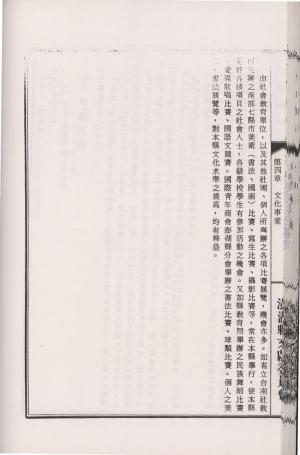 第四章　文化事業
由社會教育單位，以及其他社團、個人所舉辦之各項比賽展覽，機會亦多。如省立台南社教
館主辦之南部七縣市美術（書法、國畫）比賽、寫生比賽、攝影比賽等，常在本縣舉行，使本縣
愛好各該項目之社會人士，各級學校學生有參加活動之機會。又如縣教育局舉辦之民族舞蹈比賽
、愛國歌唱比賽、國語文競賽。國際青年商會澎湖縣分會舉辦之書法比賽、球類比賽。個人之美
、書法展覽等，對本縣文化水準之提高，均有裨益。